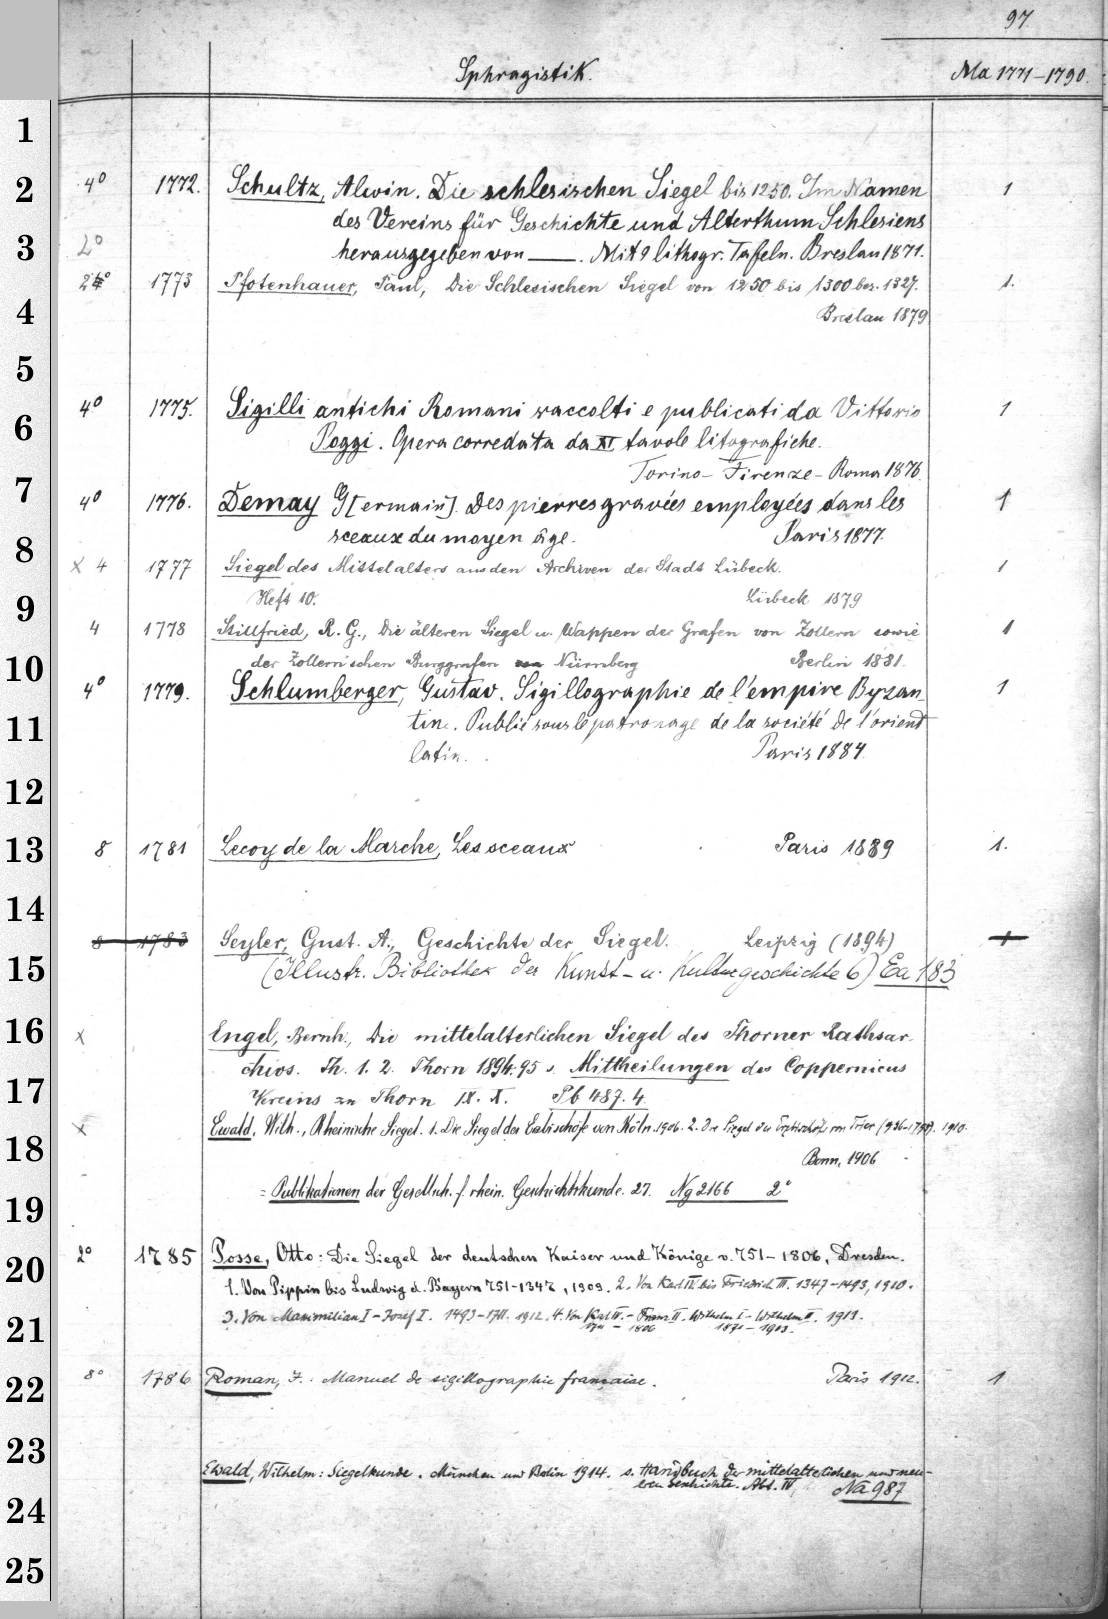 97
Sphragistik. Ma 1771-1790.
1
2 4° 1772. Schultz, Alwin. Die schlesischen Siegel bis 1250. Im Namen 1
des Vereins für Geschichte und Alterthum Schlesiens
3 2° herausgegeben von ——. Mit 9 lithogr. Tafeln. Breslau 1871.
2° 1773 Pfotenhauer, Paul, Die Schlesischen Siegel von 1250 bis 1300 bez. 1327. 1.
4 Breslau 1879
5
6 4° 1775. Sigilli antichi Romani raccolti e publicati da Vittorio 1
Poggi. Opera corredata da XI tavole litografiche.
Torino - Firenze - Roma 1876.
7 4° 1776. Demay G[ermain]. Des pierres gravées employées dans les 1
8 sceaux du moyen âge. Paris 1877.
x 4 1777 Siegel des Mittelalters aus den Archiven der Stadt Lübeck. 1
9 Heft 10. Lübeck 1879
4 1778 Stillfried, R. G., Die älteren Siegel u. Wappen der Grafen von Zollern sowie 1
10 der Zollern'schen Burggrafen von Nürnberg Berlin 1881.
4° 1779. Schlumberger, Gustav. Sigillographie de l'empire Byzan 1
11 tin. Publié sous le patronage de la société de l'orient
latin. Paris 1884.
12
13 8 1781 Lecoy de la Marche, Les sceaux Paris 1889 1.
14
8 1783 Seyler, Gust. A., Geschichte der Siegel. Leipzig (1894) 1
15 (Illustr. Bibliothek der Kunst- u. Kulturgeschichte 6) Ea 183
16 x Engel, Bernh., Die mittelalterlichen Siegel des Thorner Rathsar
chivs. Th. 1. 2. Thorn 1894.95 s. Mittheilungen des Coppernicus
17 Vereins zu Thorn IX. X. Pb 487. 4.
x Ewald, Wilh., Rheinische Siegel. 1. Die Siegel der Erzbischöfe von Köln. 1906. 2. Die Siegel der Erzbischöfe von Trier 1910.
18 Bonn, 1906
19 = Publikationen der Gesellsch. f. rhein. Geschichtskunde. 27. Ng 2166 2°
20 2° 1785 Posse, Otto: Die Siegel der deutschen Kaiser und Könige v. 751-1806, Dresden.
1. Von Pippin bis Ludwig d. Bayern 751-1347, 1909. 2. Von Karl IV. bis Friedrich III. 1347-1493, 1910.
21 3. Von Maximilian I - Josef I. 1493-1711. 1912. 4. Von Karl VI. - Franz II. Wilhelm I - Wilhelm II. 1913.
1711 - 1806 1871 - 1913.
22 8° 1786 Roman, J.: Manuel de sigillographie française. Paris 1912. 1
23 Ewald, Wilhelm: Siegelkunde. München und Berlin 1914. s. Handbuch der mittelalterlichen und neu-
eren Geschichte. Abt. IV, Na 987
24
25